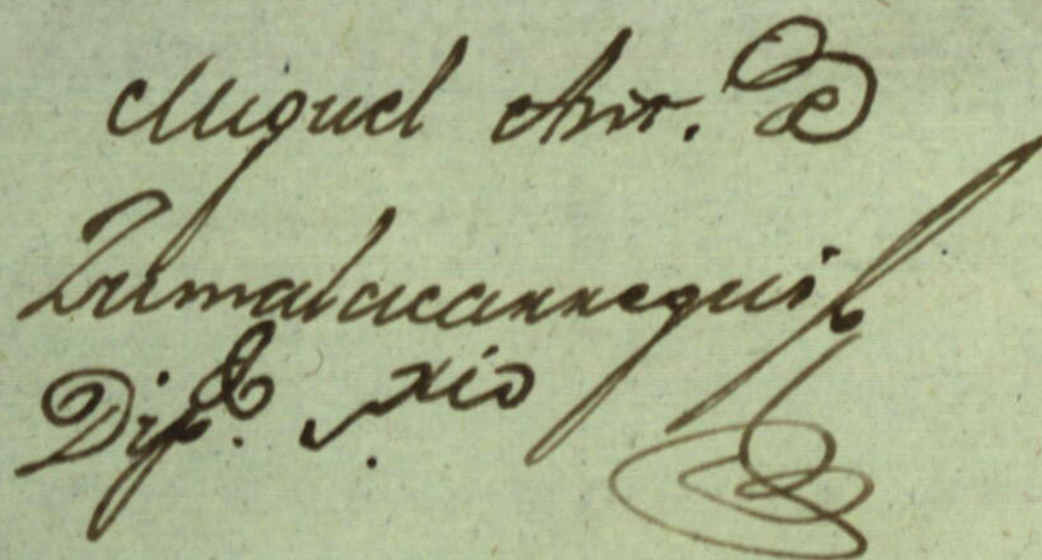 Miguel Ant. de
Zumalacarregui
Dip.